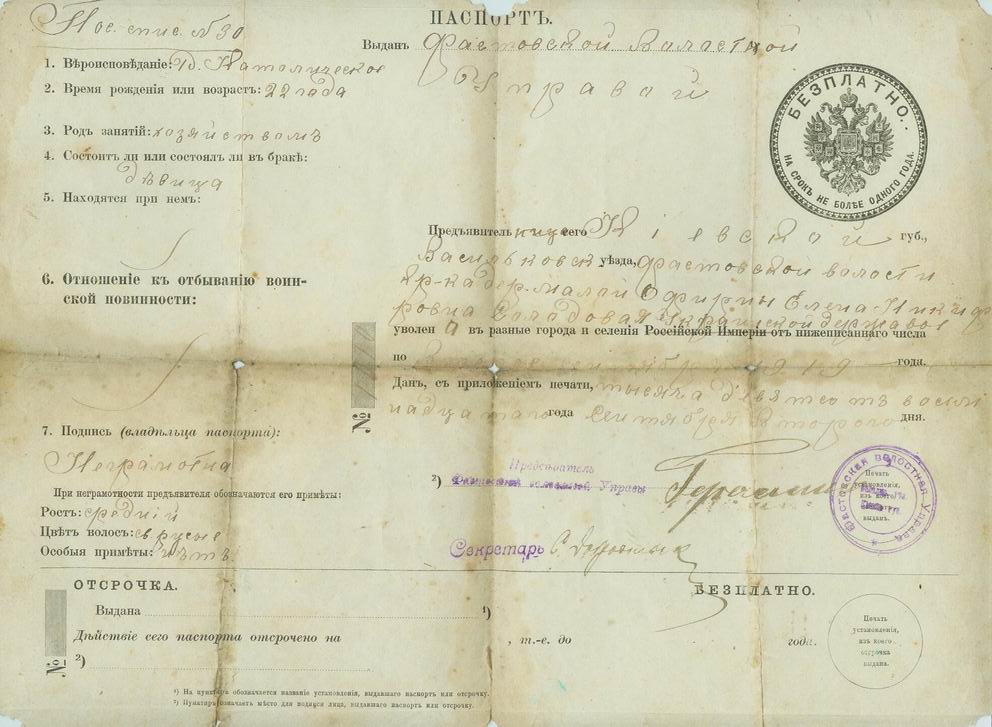 Пос. спис. № 30
ПАСПОРТЪ.
Выданъ Фастовской валастной
Управой
1. Вѣроисповѣданіе: Католическое
2. Время рожденія или возрастъ: 22 года
3. Родъ занятій: хозяйствомъ
4. Состоитъ ли или состоялъ ли въ бракѣ:
дѣвица
5. Находятся при немъ:
БЕЗПЛАТНО.
НА СРОКЪ НЕ БОЛѢЕ ОДНОГО ГОДА.
Предъявительница сего Кіевской губ.,
Васильковск уѣзда, Фастовской валости
кр-ка дер. Малой Офирны Елена Никиф
ровна
6. Отношеніе къ отбыванію воин-
ской повинности:
уволена въ разные города и селенія Россійской Имперіи Украинской державы отъ нижеписаннаго числа
по 1919 года.
Данъ, съ приложеніемъ печати, тысяча девятсотъ восем
надцатаго года Сентября Второго дня.
№
7. Подпись (владѣльца паспорта):
Неграмотна
При неграмотности предъявителя обозначаются его примѣты:
Ростъ: средній
Цвѣтъ волосъ: св русые
Особыя примѣты: нѣтъ
Предсѣдатель
²) Управы
Секретарь
Фастовская волостная Управа
Печать установленія, изъ коего выданъ.
ОТСРОЧКА.
БЕЗПЛАТНО.
Выдана ¹)
Дѣйствіе сего паспорта отсрочено на , т.-е. до года.
№
²)
Печать
установленія,
изъ коего
отсрочка
выдана.
¹) На пунктирѣ обозначается названіе установленія, выдавшаго паспортъ или отсрочку.
²) Пунктиръ означаетъ мѣсто для подписи лица, выдавшаго паспортъ или отсрочку.